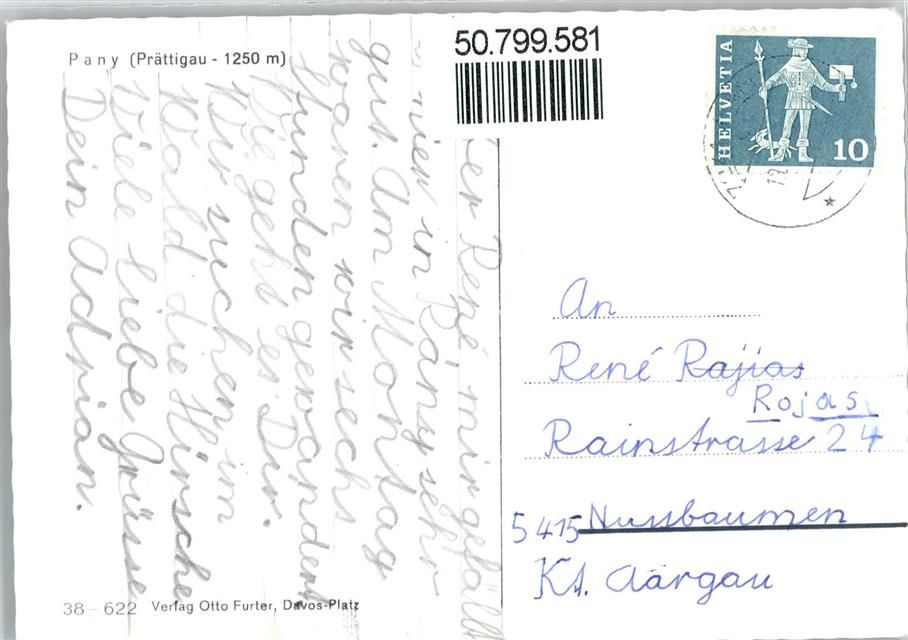 Pany (Prättigau - 1250 m)
50.799.581
HELVETIA
10
er René mir gefällt
hier in Pany sehr
gut. Am Montag
waren wir sechs
Stunden gewandert
Wie geht es Dir.
Wir suchen im
Wald die Hirsche
Viele liebe Grüsse
Dein Adrian.
An
René Rajias
Rojas
Rainstrasse 24
5415 Nussbaumen
Kt. Aargau
38 - 622 Verlag Otto Furter, Davos-Platz